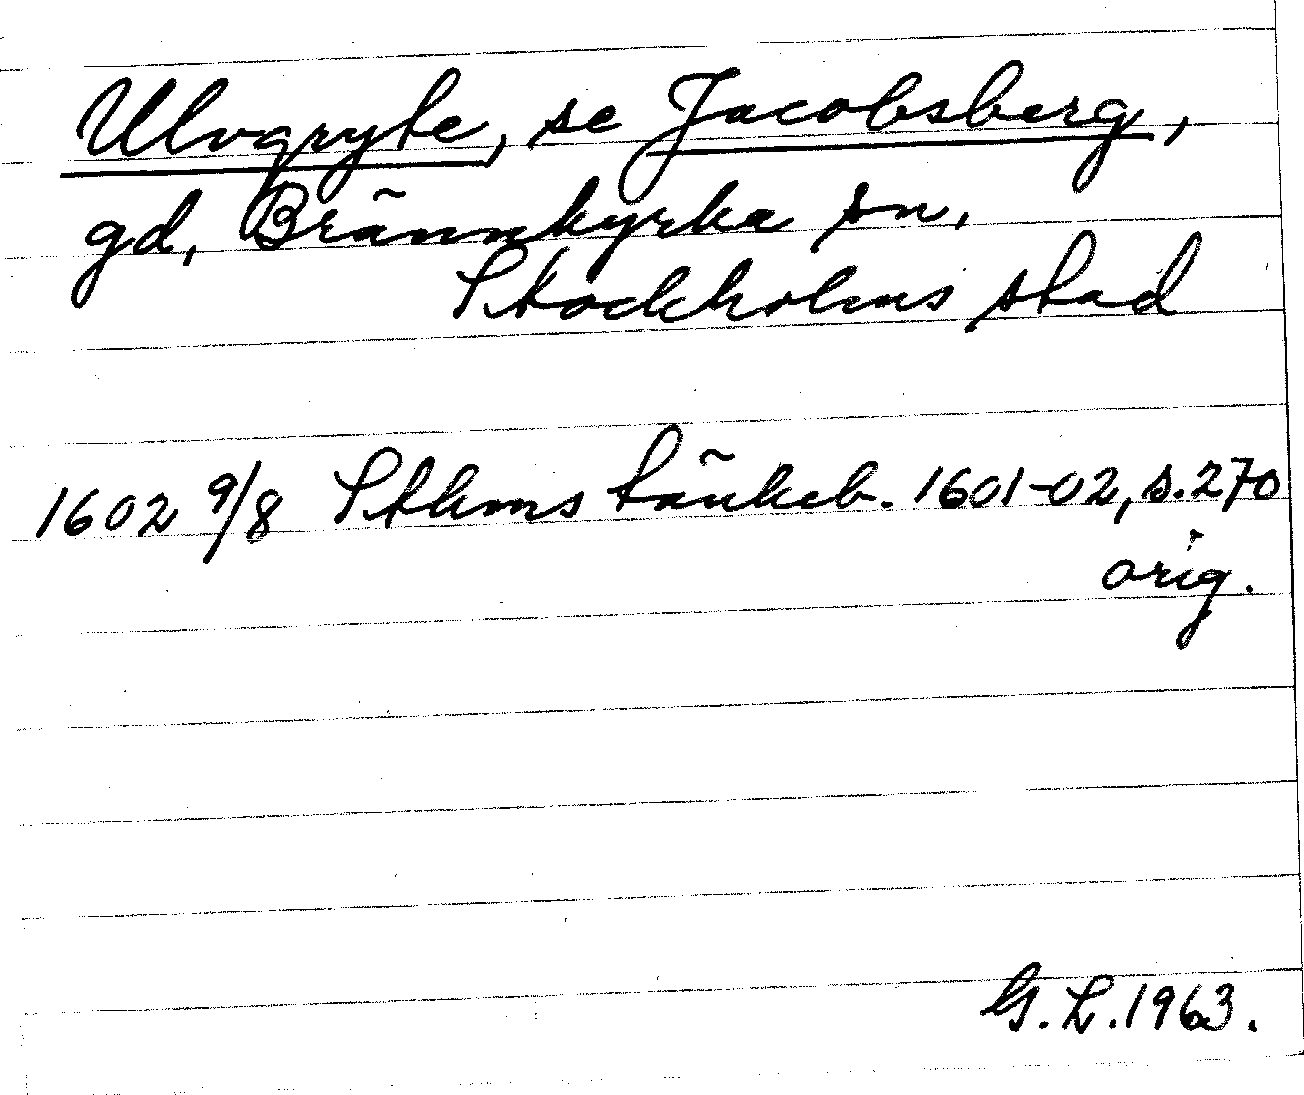 Ulvgryte, se Jacobsberg,
gd, Brännkyrka sn,
Stockholms stad
1602 9/8 Sthms tänkeb. 1601-02, s. 270
orig.
G. L. 1963.